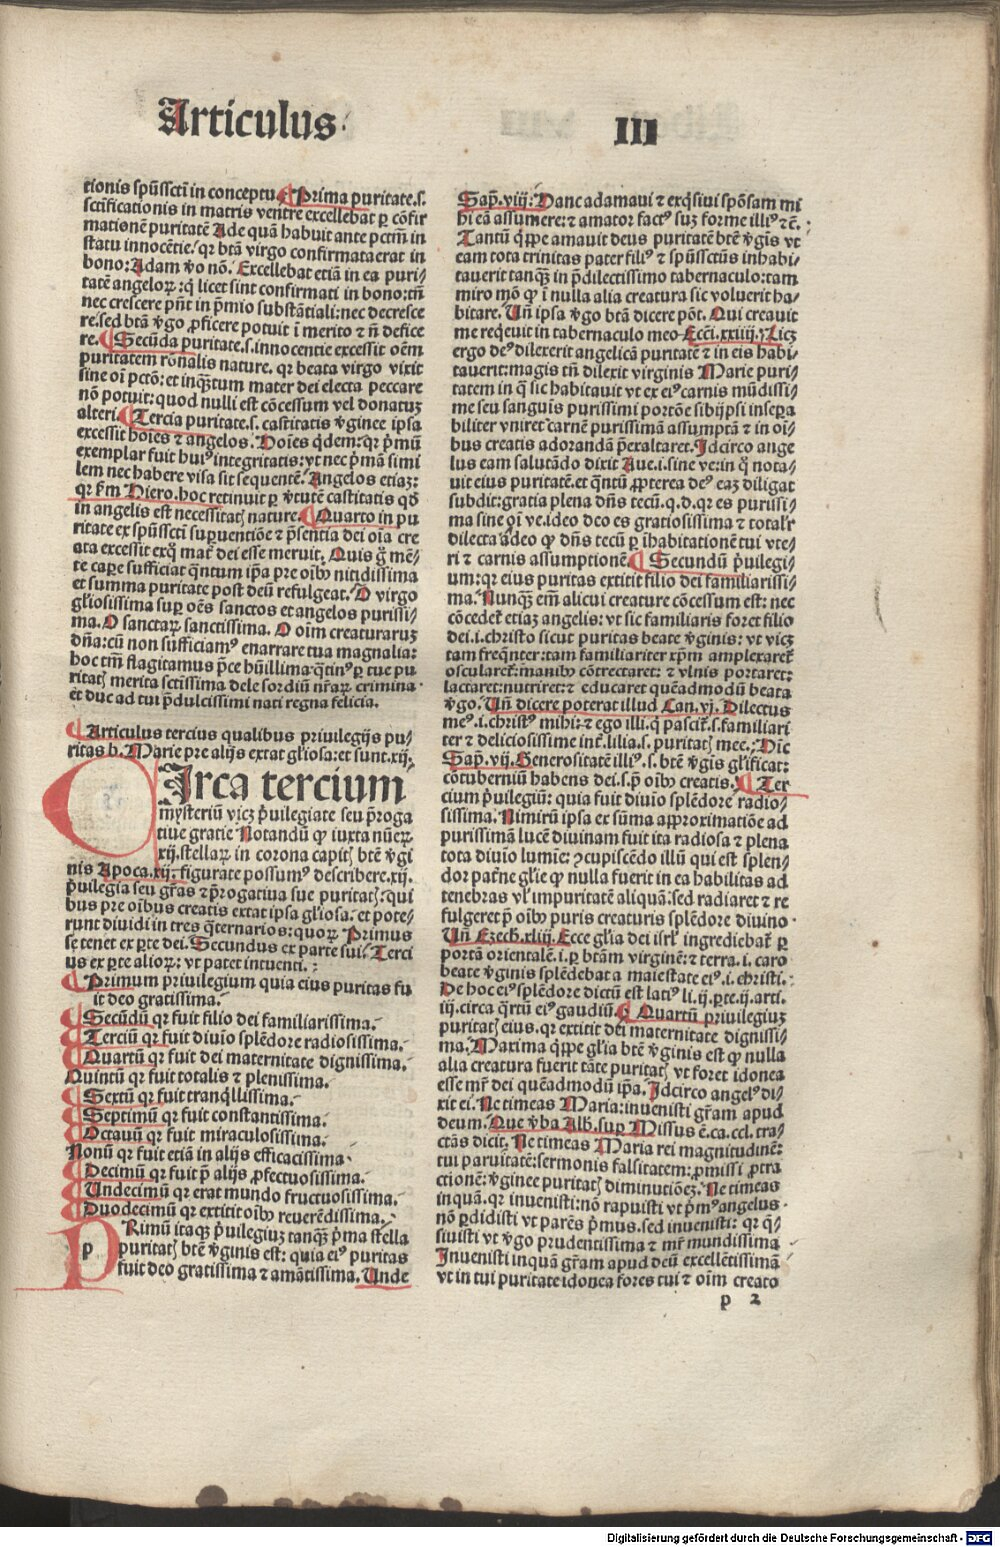 Articulus III
tionis spūsscti in conceptu. ¶ Prima puritate.s.
sctificationis in matris ventre excellebat ꝑ cōfir
mationē puritatē Ade quā habuit ante pctm̄ in
statu innocētie. qꝛ btā virgo confirmata erat in
bono: Adam ꝟo nō. Excellebat etiā in ea puri/
tatē angeloꝝ: q̇ licet sint confirmati in bono: tn̄
nec crescere pn̄t in p̄mio substātiali: nec decresce
re. sed btā ꝟgo ꝓficere potuit ī merito ⁊ n̄ defice
re. ¶ Secūda puritate.s. innocentie excessit oēm
puritatem rōnalis nature. qꝛ beata virgo vixit
sine oī pctō: et inqͣtum mater dei electa peccare
nō potuit: quod nulli est cōcessum vel donatuꝫ
alteri. ¶ Tercia puritate.s. castitatis ꝟginee ipsa
excessit hoīes ⁊ angelos. Hoīes q̇dem: qꝛ p̄mū
exemplar fuit huiꝰ integritatis: vt nec p̄mā simi
lem nec habere visa sit sequentē. Angelos etiaꝫ:
qꝛ ẜm Hiero. hoc retinuit ꝑ ꝟtutē castitatis qd̄
in angelis est necessitatꝭ nature. ¶ Quarto in pu
ritate ex spūsscti suꝑuentiōe ⁊ p̄sentia dei oīa cre
ata excessit exq̄ mat̄ dei esse meruit. Quis g̊ mē/
te caꝑe sufficiat qͣntum ip̄a pre oīb⁹ nitidissima
et summa puritate post deū refulgeat. O virgo
gl̄iosissima suꝑ oēs sanctos et angelos purissi/
ma. O sanctaꝝ sanctissima. O oīm creaturaruꝫ
dn̄a: cū non sufficiamꝰ enarrare tua magnalia:
hoc tm̄ flagitamus p̄ce hūillima: qͣtinꝰ ꝑ tue pu
ritatꝭ merita sctissima dele sordiū nr̄aꝝ crimina
et duc ad tui p̄dulcissimi nati regna felicia.
¶ Articulus tercius qualibus priuilegijs pu/
ritas b. Marie pre alijs extat gl̄iosa: et sunt.xij.
CIrca tercium
mysteriū vicꝫ p̄uilegiate seu p̄roga
tiue gratie Notandū ꝙ iuxta nūeꝝ
xij. stellaꝝ in corona capitꝭ btē ꝟgi
nis Apoca.xij. figurate possumꝰ describere.xij.
p̄uilegia seu gr̄as ⁊ p̄rogatiua sue puritatꝭ: qui
bus pre oībus creatis extat ipsa gl̄iosa: et pote/
runt diuidi in tres q̄ternarios: quoꝝ Primus
se tenet ex ꝑte dei. Secundus ex parte sui. Terci
us ex ꝑte alioꝝ: vt patet intuenti.
¶ Primum priuilegium quia eius puritas fu
it deo gratissima.
¶ Secūdū qꝛ fuit filio dei familiarissima.
¶ Terciū qꝛ fuit diuio splēdore radiosissima.
¶ Quartū qꝛ fuit dei maternitate dignissima.
Quintū qꝛ fuit totalis ⁊ plenissima.
¶ Sextū qꝛ fuit tranq̇llissima.
¶ Septimū qꝛ fuit constantissima.
¶ Octauū qꝛ fuit miraculosissima.
Nonū qꝛ fuit etiā in alijs efficacissima.
¶ Decimū qꝛ fuit p̄ alijs ꝓfectuosissima.
¶ Undecimū qꝛ erat mundo fructuosissima.
¶ Duodecimū qꝛ extitit oīb⁹ reuerēdissima.
PRimū itaqꝫ p̄uilegiuꝫ tanqꝫ p̄ma stella
p puritatꝭ btē ꝟginis est: quia eiꝰ puritas
fuit deo gratissima ⁊ amātissima. Unde
Sap̄.viij: Hanc adamaui ⁊ exq̇siui spōsam mi
hi eā assumere: ⁊ amator factꝰ suꝫ forme illiꝰ ⁊c̄.
Tantū q̇ppe amauit deus puritatē btē ꝟgīs vt
eam tota trinitas pater filiꝰ ⁊ spūssctūs inhabi/
tauerit tanqꝫ in p̄dilectissimo tabernaculo: tam
miro mō ꝙ ī nulla alia creatura sic voluerit ha/
bitare. Un̄ ipsa ꝟgo btā dicere pōt. Qui creauit
me req̇euit in tabernaculo meo Ecci.xxiiij. Licꝫ
ergo deꝰ dilexerit angelicā puritatē ⁊ in eis habi/
tauerit: magis tn̄ dilexit virginis Marie puri/
tatem in q̄ sic habitauit vt ex eiꝰ carnis mūdissi/
me seu sanguīs purissimi portōe sibijpsi insepa
biliter vniret carnē purissimā assumptā ⁊ in oī/
bus creatis adorandā p̄exaltaret. Idcirco ange
lus eam salutādo dixit Aue.i. sine ve: in q̊ nota/
uit eius puritatē. et qͣntū ꝓpterea deꝰ eaꝫ diligat
subdit: gratia plena dn̄s tecū. q.d. qꝛ es purissi/
ma sine oī ve. ideo deo es gratiosissima ⁊ totalr̄
dilecta adeo ꝙ dn̄s tecū ꝑ īhabitationē tui vte/
ri ⁊ carnis assumptionē. ¶ Secundū p̄uilegi/
um: qꝛ eius puritas extitit filio dei familiarissi/
ma. Nunqꝫ em̄ alicui creature cōcessum est: nec
cōcedet̄ etiaꝫ angelis: vt sic familiaris foret filio
dei.i. christo sicut puritas beate ꝟginis: vt vicꝫ
tam freq̄nter: tam familiariter xp̄m amplexaret̄
oscularet̄: manib⁹ cōtrectaret: ⁊ vlnis portaret:
lactaret: nutriret: ⁊ educaret quēadmodū beata
ꝟgo. Un̄ dicere poterat illud Can.vj. Dilectus
meꝰ.i. christꝰ mihi: ⁊ ego illi: q̇ pascit̄.s. familiari
ter ⁊ deliciosissime int̄ lilia.s. puritatꝭ mee. Dīc
Sap̄.vij. Generositatē illiꝰ.s. btē ꝟgīs gl̄ificat:
cōtuberniū habens dei.s. p̄ oīb⁹ creatis. ¶ Ter
cium p̄uilegiū: quia fuit diuio splēdore radio/
sissima. Nimirū ipsa ex sūma approximatiōe ad
purissimā lucē diuinam fuit ita radiosa ⁊ plena
tota diuīo lumīe: ꝯcupiscēdo illū qui est splen/
dor pat̄ne gl̄ie ꝙ nulla fuerit in ea habilitas ad
tenebras vl̓ impuritatē aliquā: sed radiaret ⁊ re
fulgeret p̄ oīb⁹ puris creaturis splēdore diuino
Un̄ Ezech.xliij. Ecce gl̄ia dei isrl̓ ingrediebat̄ ꝑ
portā orientalē.i. ꝑ btām virginē: ⁊ terra.i. caro
beate ꝟginis splēdebat a maiestate eiꝰ.i. christi.
De hoc eiꝰ splēdore dictū est latiꝰ li.ij. ꝑte.ij. arti.
iij. circa q̄rtū eiꝰ gaudiū. ¶ Quartū priuilegiuꝫ
puritatꝭ eius. qꝛ extitit dei maternitate dignissi/
ma. Maxima q̇ppe gl̄ia btē ꝟginis est ꝙ nulla
alia creatura fuerit tāte puritatꝭ vt foret idonea
esse mr̄ dei quēadmodū ip̄a. Idcirco angelꝰ di/
xit ei. Ne timeas Maria: inuenisti gr̄am apud
deum. Que ꝟba Alb. suꝑ Missus ē. ca. ccl. tra/
ctās dicit. Ne timeas Maria rei magnitudinē:
tui paruitatē: sermonis falsitatem: ꝓmissi ꝓtra
ctionē: ꝟginee puritatꝭ diminutiōeꝫ. Ne timeas
inquā. qꝛ inuenisti: nō rapuisti vt p̄mꝰ angelus
nō ꝑdidisti vt parēs p̄mus. sed inuenisti: qꝛ q̄/
siuisti vt ꝟgo prudentissima ⁊ mr̄ mundissima
Inuenisti inquā gr̄am apud deū excellētissimā
vt in tui puritate idonea fores tui ⁊ oīm creato
p 2
Digitalisierung gefördert durch die Deutsche Forschungsgemeinschaft - DFG